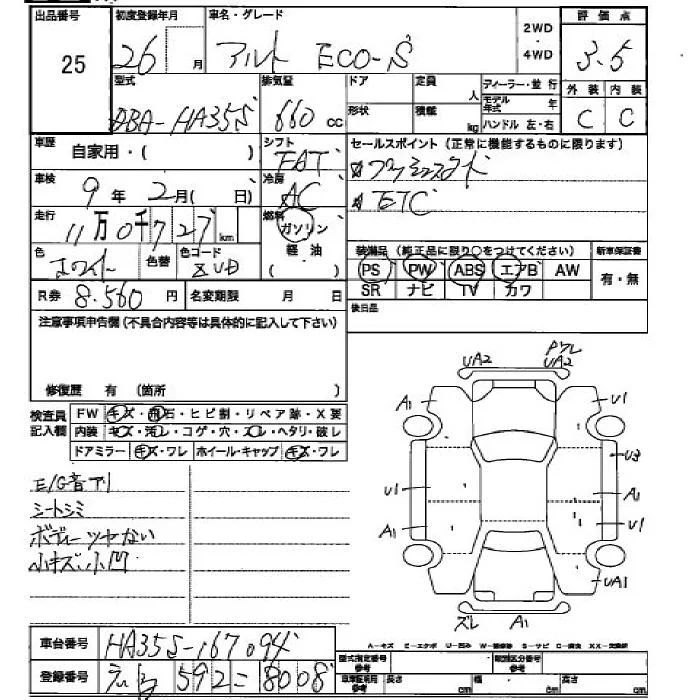 出品番号 初度登録年月 車名・グレード 評価点
25 26 月 アルト ECO-S 2WD・4WD 3.5
型式 排気量 ドア 定員 人 ディーラー・並行 外装 内装
DBA-HA35S 660 cc 形状 積載 kg モデル年式 年 ハンドル 左・右 C C
車歴 自家用・( ) シフト FAT セールスポイント(正常に機能するものに限ります)
車検 9年 2月( 日) 冷房 AC
ETC
走行 11万0千727km 燃料 ガソリン 軽油 ( )
色 ホワイト 色替 色コード ZVD
装備品(純正品に限り○をつけてください) 新車保証書
PS PW ABS エアB AW 有・無
SR ナビ TV カワ
R券 8.560円 名変期限 月 日 後日品
注意事項申告欄(不具合内容等は具体的に記入して下さい)
修復歴 有 (箇所 )
検査員記入欄 FW キズ・飛石・ヒビ割・リペア跡・X要
内装 キズ・汚レ・コゲ・穴・スレ・ヘタリ・破レ
ドアミラー キズ・ワレ ホイール・キャップ キズ・ワレ
E/G音アリ
シートシミ
ボディーツヤない
小キズ、小凹
UA2 Pワレ UA2
A1 U1
U3
U1 A1
A1 U1
UA1
ズレ A1
車台番号 HA35S-167094
登録番号 592 こ 8008
型式指定番号 参考 類別区分番号 参考
車庫証明用 参考 長さ cm 幅 cm 高さ cm